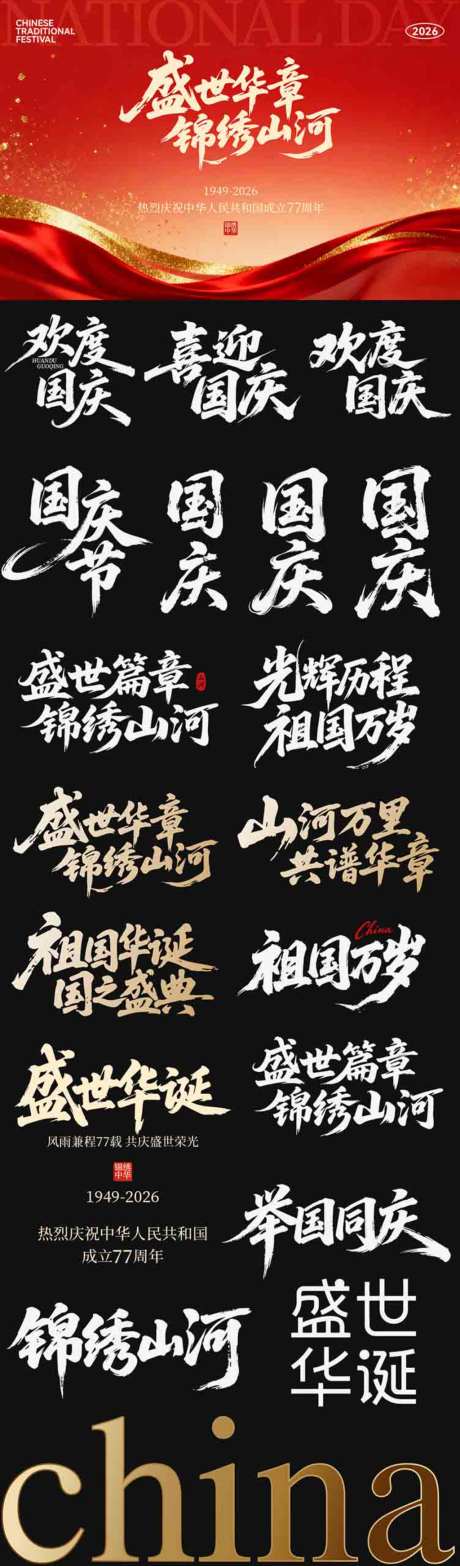 NATIONAL DAY
CHINESE
TRADITIONAL
FESTIVAL
2026
盛世华章
锦绣山河
1949-2026
热烈庆祝中华人民共和国成立77周年
锦绣
中华
欢度
HUANDU
GUOQING
国庆
喜迎
国庆
欢度
国庆
国庆节
国庆
国庆
国庆
盛世篇章
锦绣山河
光辉历程
祖国万岁
盛世华章
锦绣山河
山河万里
共谱华章
祖国华诞
国之盛典
China
祖国万岁
盛世华诞
风雨兼程77载 共庆盛世荣光
锦绣
中华
1949-2026
热烈庆祝中华人民共和国
成立77周年
盛世篇章
锦绣山河
举国同庆
锦绣山河
盛世
华诞
china